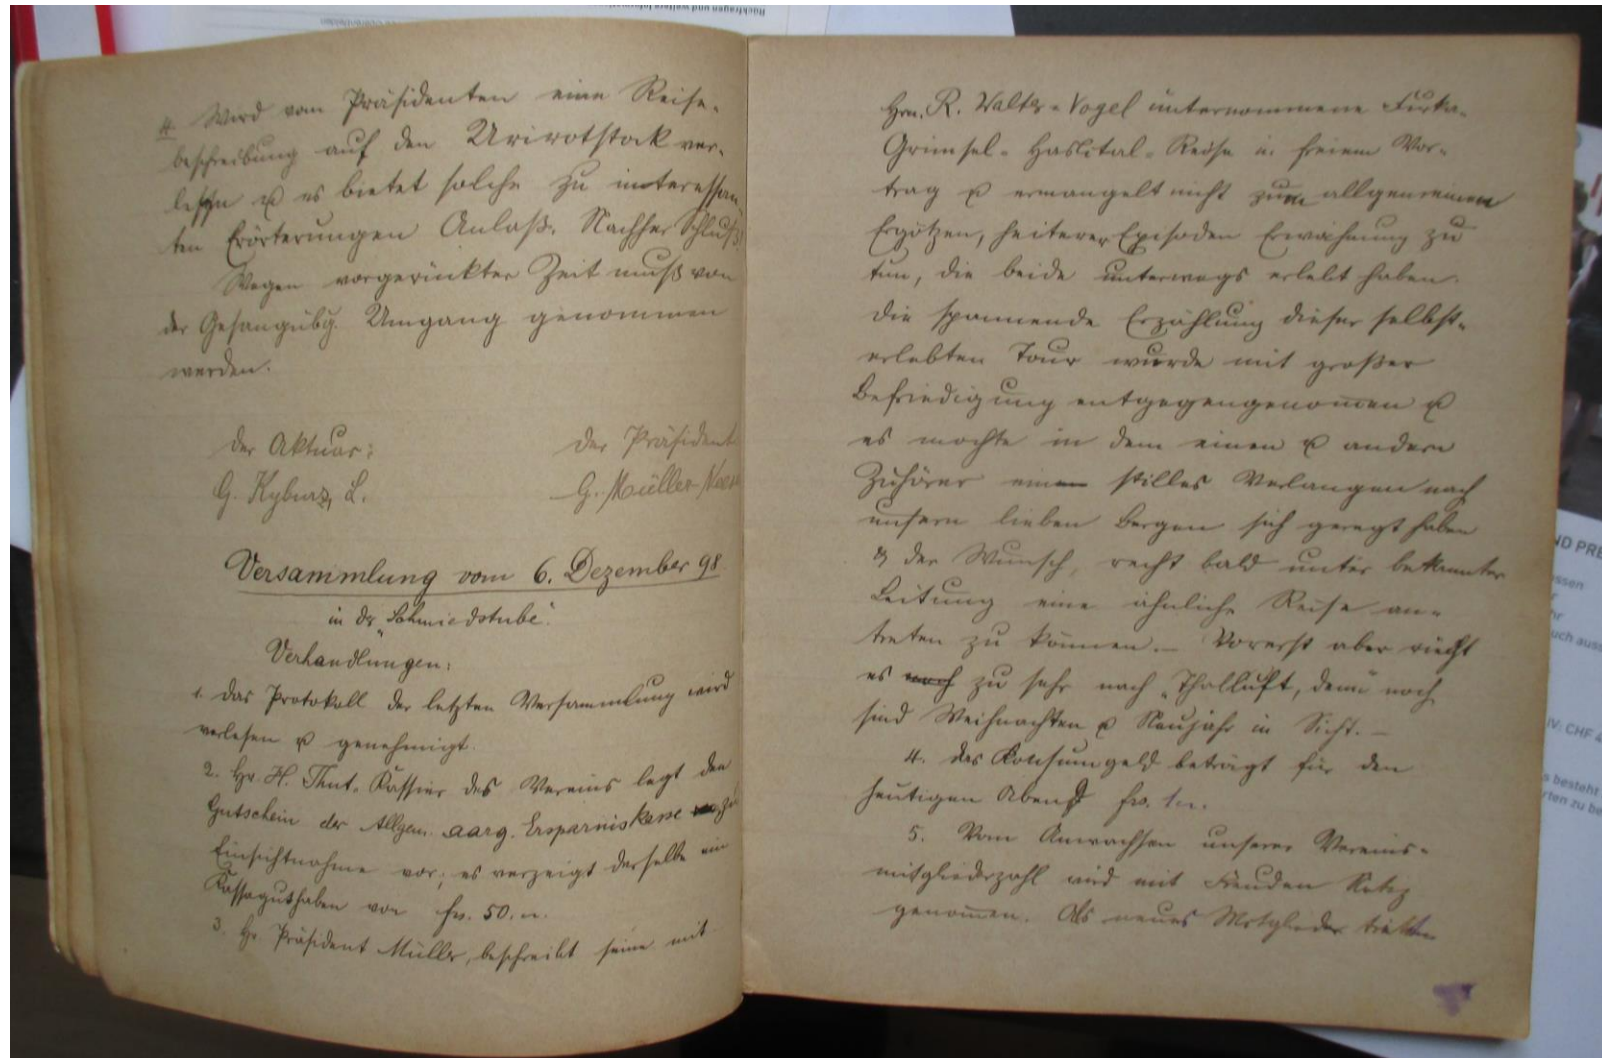 4. Wird vom Präsidenten eine Reise-
beschreibung auf den Urirotstock ver-
lesen u es bietet solche zu interessan
ten Erörterungen Anlaß. Nachher Schluß.
Wegen vorgerückter Zeit muß von
der Gesangübg. Umgang genommen
werden.
Der Aktuar:
Der Präsident
G. Kyburz, L.
G. Müller
Versammlung vom 6. Dezember 98
in der "Schmiedstube".
Verhandlungen:
1. Das Protokoll der letzten Versammlung wird
verlesen u genehmigt.
2. Hr. H. Thut, Kassier des Vereins legt den
Gutschein der Allgem. aarg. Ersparniskasse
Einsichtnahme vor; es verzeigt derselbe ein
Kassaguthaben von frs. 50.
3. Hr Präsident Müller, beschreibt seine mit
Hrn. R. Walter-Vogel unternommene Furka-
Grimsel-Haslital-Reise in freiem Vor-
trag u ermangelt nicht zum allgemeinen
Ergötzen, heiterer Episoden Erwähnung zu
tun, die beide unterwegs erlebt haben.
Die spannende Erzählung dieser selbst-
erlebten Tour wurde mit großer
Befriedigung entgegengenommen u
es mochte in dem einen u andern
Zuhörer ein stilles Verlangen nach
unsern lieben Bergen sich geregt haben
& der Wunsch, recht bald unter bekannter
Leitung eine ähnliche Reise an-
treten zu können. – Vorerst aber riecht
es zu sehr nach "Thalluft, denn noch
sind Weihnachten u Neujahr in Sicht. –
4. Das Konsumgeld beträgt für den
heutigen Abend frs. 1.
5. Vom Anwachsen unserer Vereins-
mitgliederzahl wird mit Freuden Notiz
genommen. Als neues Mitglieder treten
ND PRE
ssen
hr
uch auss
IV: CHF
s besteht
rten zu be